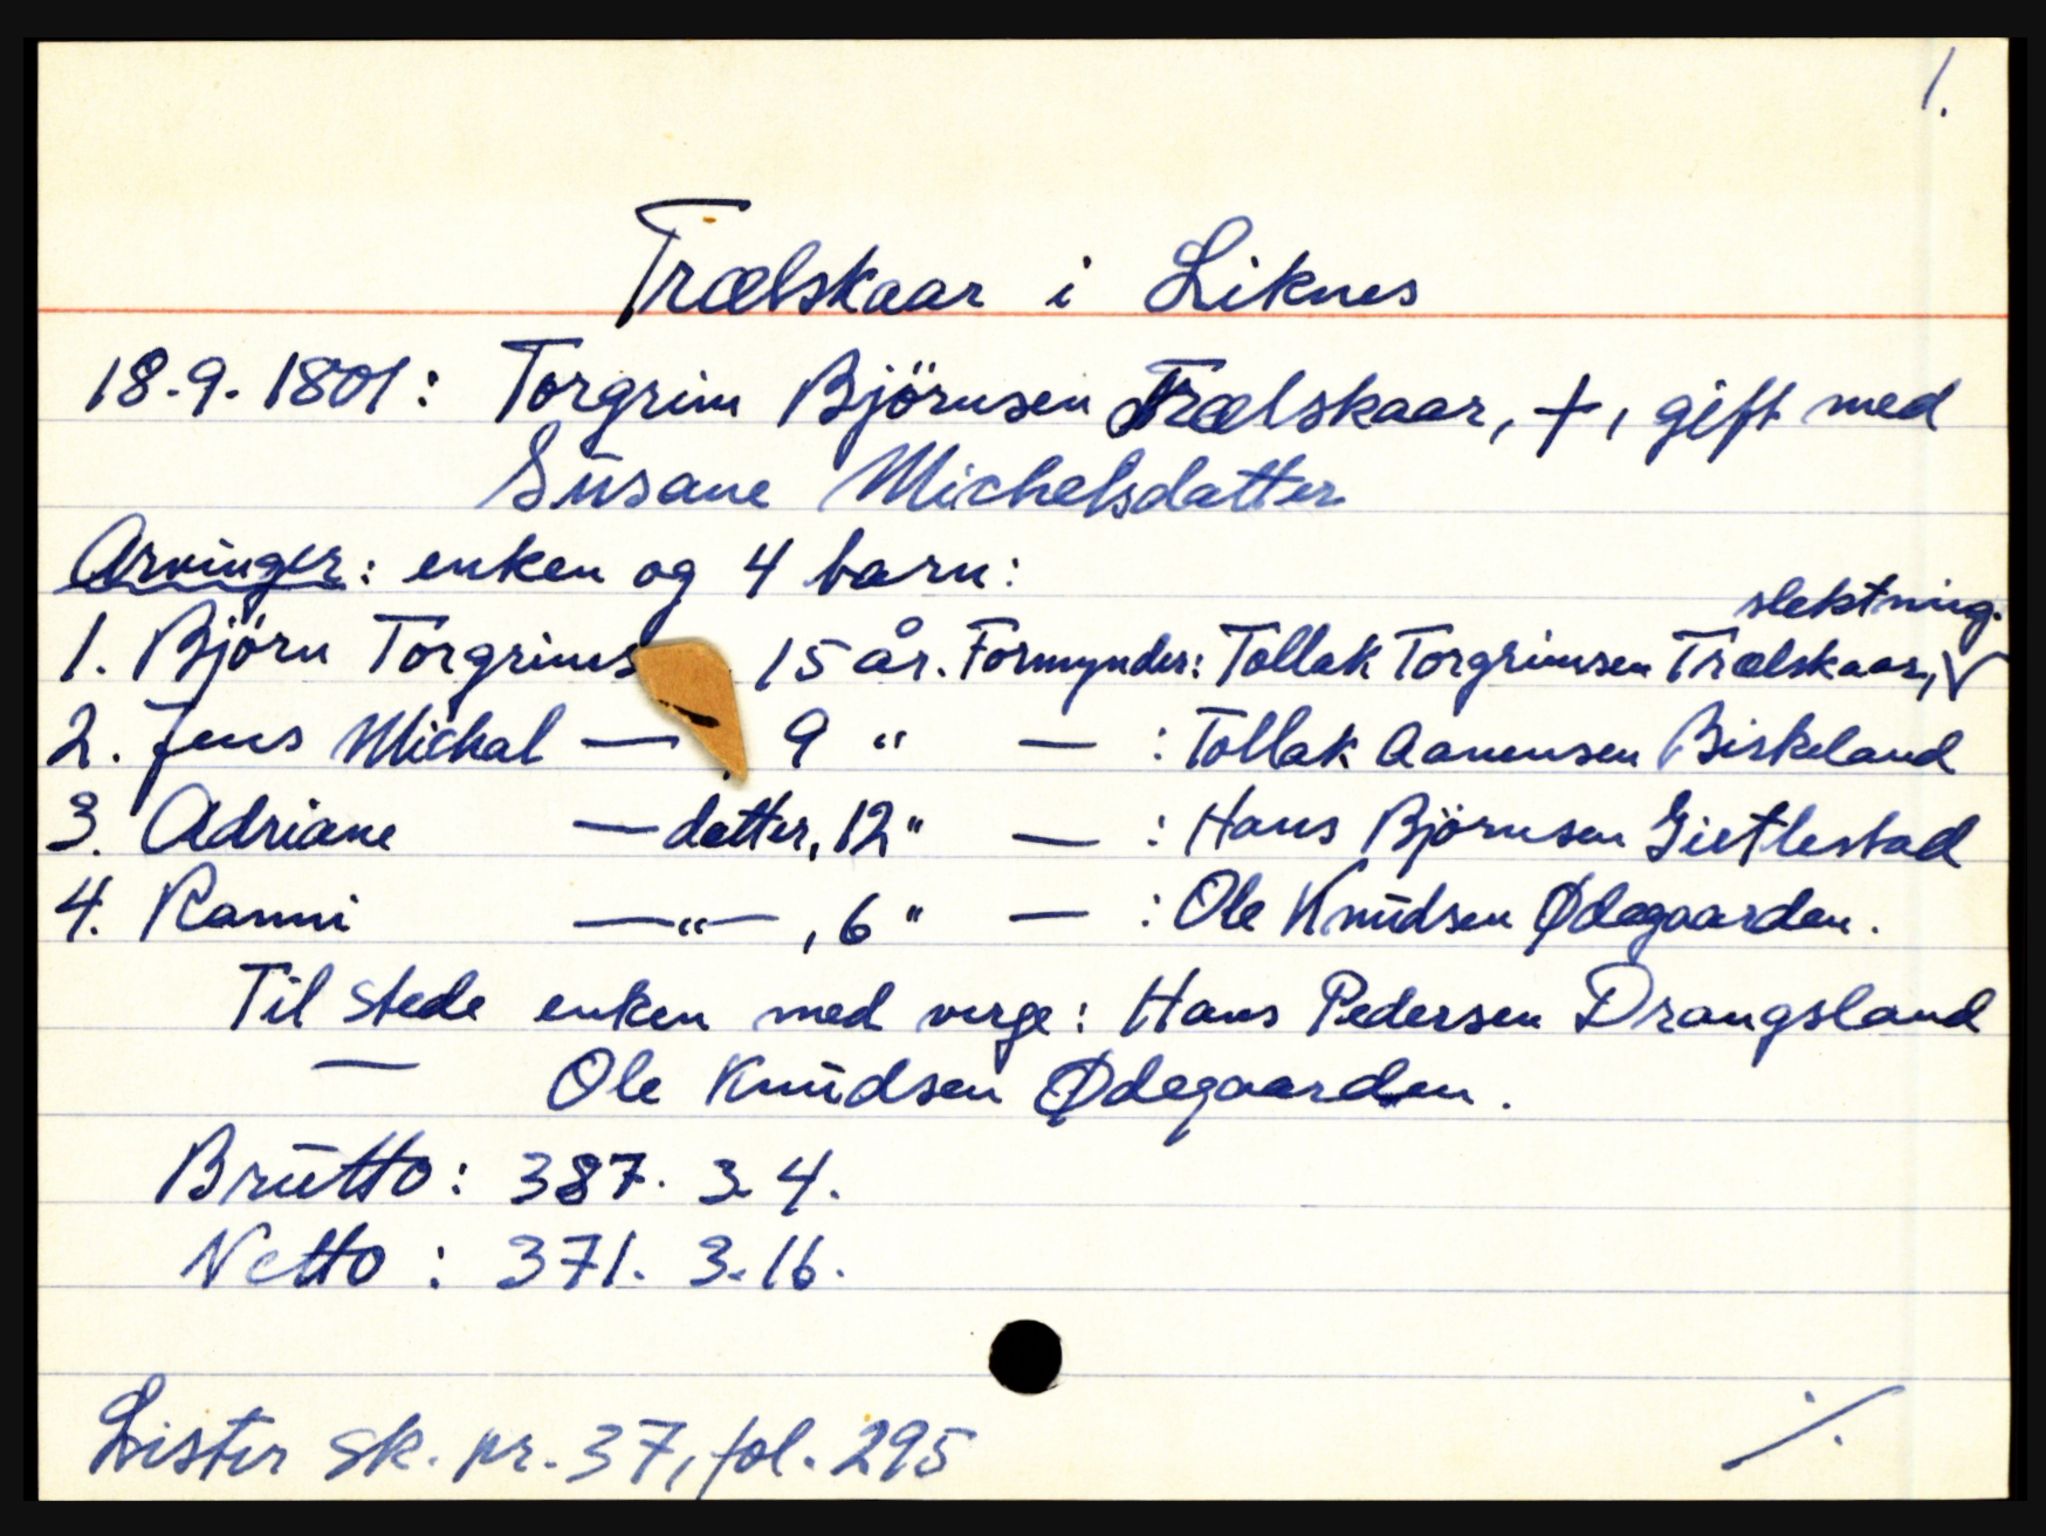 1.
Trælskaar i Liknes
18.9.1801: Torgrim Björnsen Trælskaar, +, gift med
Susane Michelsdatter
Arvinger: enken og 4 barn:
slektning.
1. Björn Torgrims 15 år. Formynder: Tollak Torgrimsen Trælskaar, V
2. Jens Michal — 9 " — : Tollak Aanensen Birkeland
3. Adriane — datter, 12 " — : Hans Björnsen Gietlestad
4. Ranni — " — , 6 " — : Ole Knudsen Ødegaarden.
Til stede enken med verge: Hans Pedersen Drangsland
— Ole Knudsen Ødegaarden.
Brutto: 387. 3. 4.
Netto : 371. 3. 16.
Lister sk. pr. 37, fol. 295 ./.